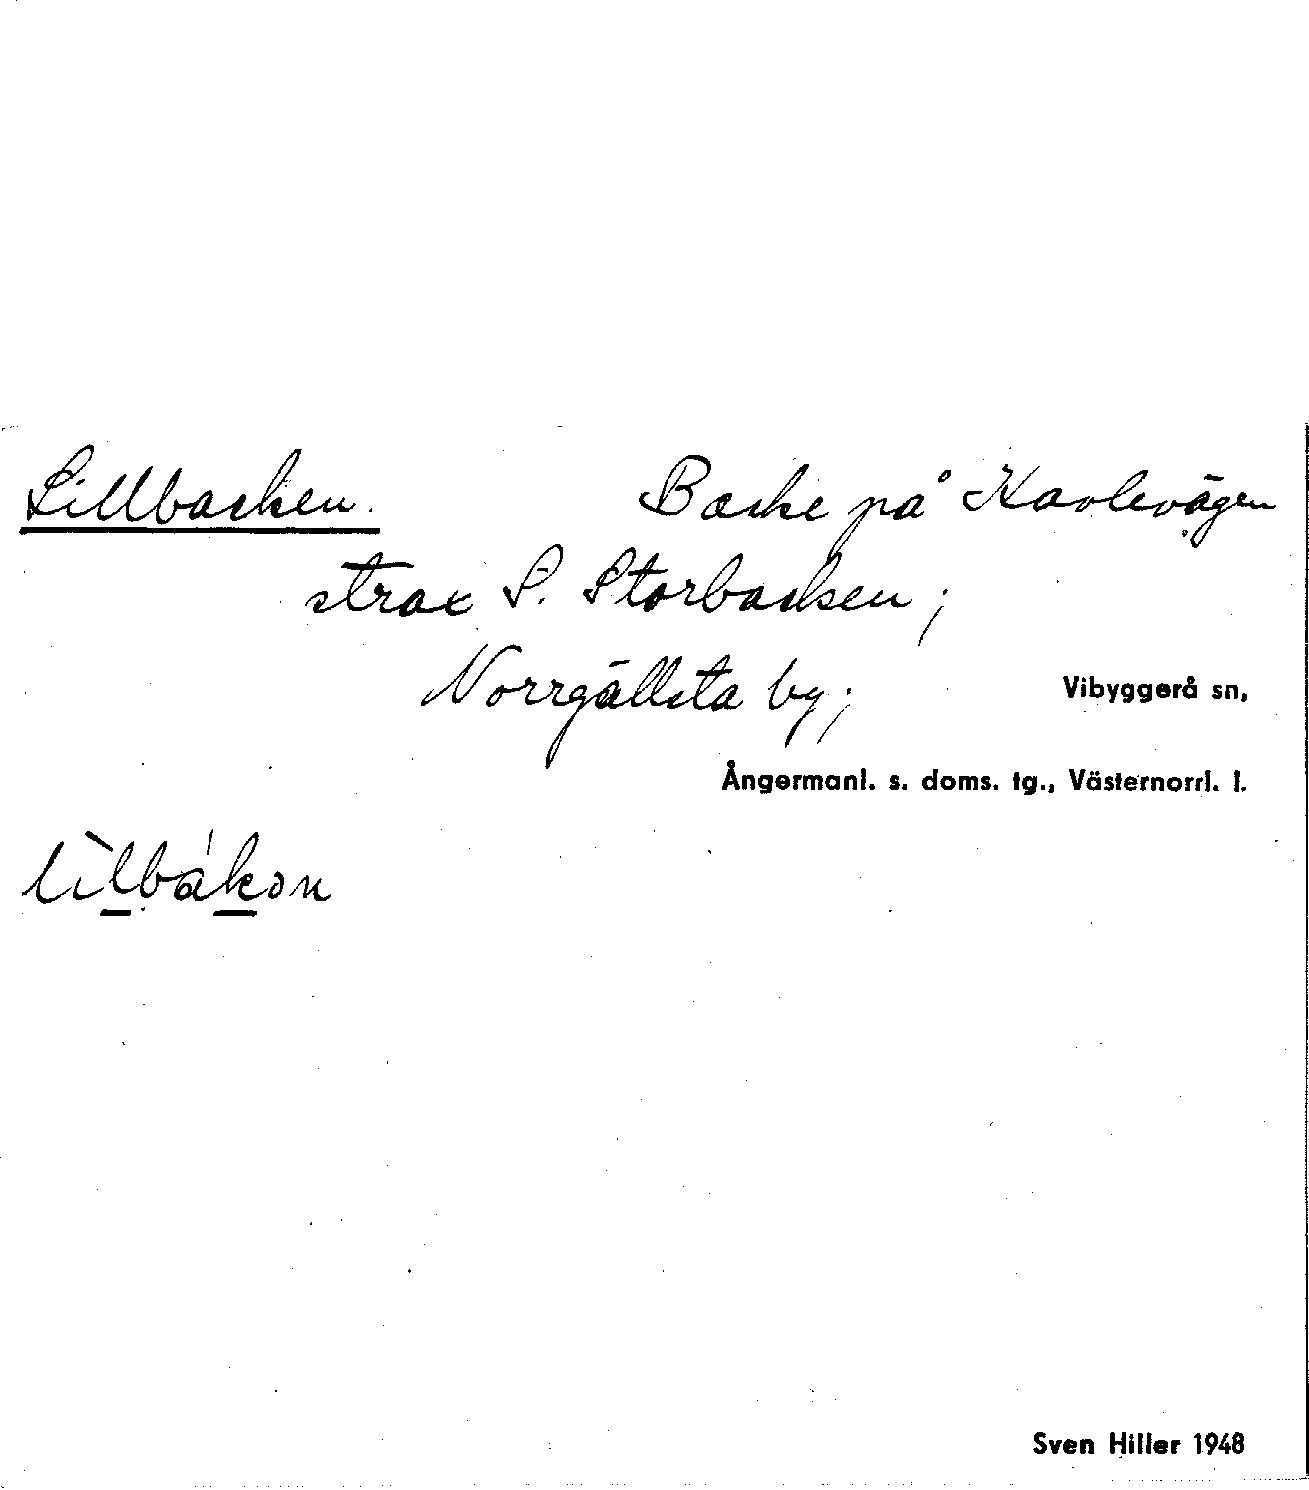 Lillbacken. Backe på Kavlevägen
strax S. Storbacken;
Norrgällsta by; Vibyggerå sn,
Ångermanl. s. doms. tg., Västernorrl. l.
lìlbákən
Sven Hiller 1948